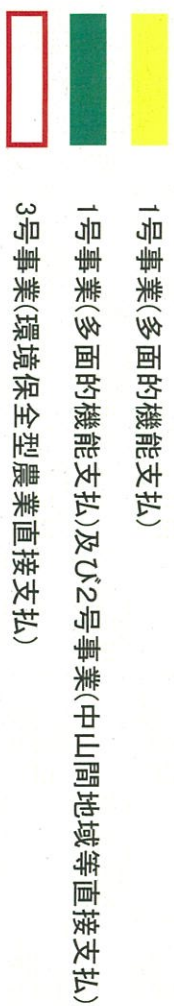 1号事業(多面的機能支払)
1号事業(多面的機能支払)及び2号事業(中山間地域等直接支払)
3号事業(環境保全型農業直接支払)